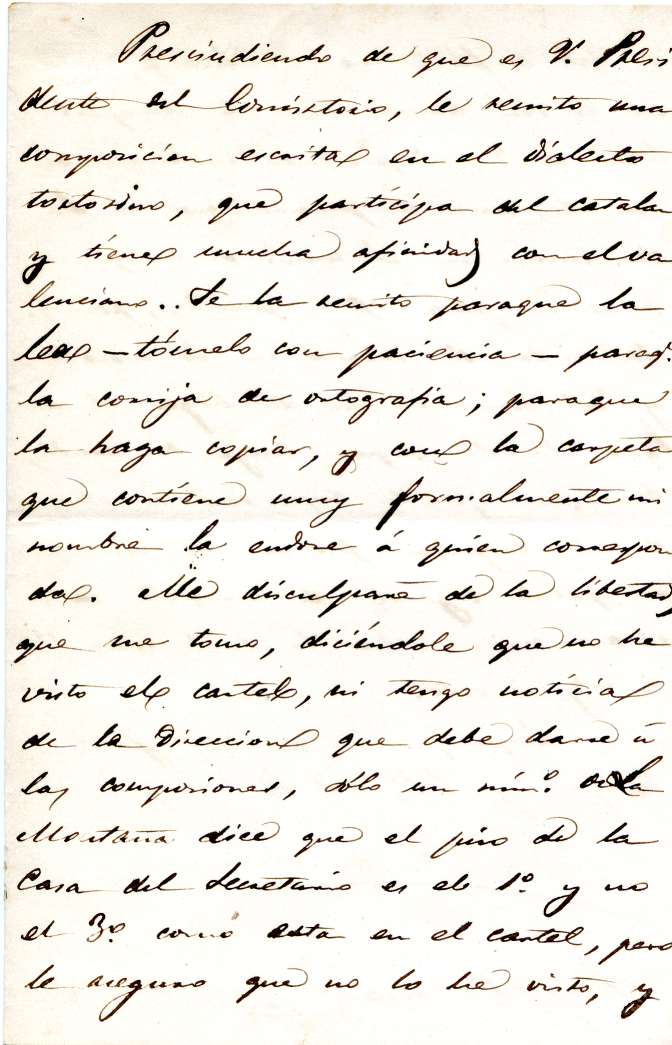 Prescindiendo de que es V. Presi
dente del Consistorio, le remito una
composicion escrita en el dialecto
tortosino, que participa del catalan
y tiene mucha afinidad con el va
lenciano.. Se la remito paraque la
lea – tómelo con paciencia – paraq.
la corrija de ortografia; paraque
la haga copiar, y con la carpeta
que contiene muy formalmente mi
nombre la endose á quien correspon
da. Me disculpará de la libertad
que me tomo, diciéndole que no he
visto el cartel, ni tengo noticia
de la Direccion que debe darse á
las composiones, sólo un núm.º de la
Montaña dice que el piso de la
Casa del Secretario es el 1.º y no
el 3.º como esta en el cartel, pero
le aseguro que no lo he visto, y